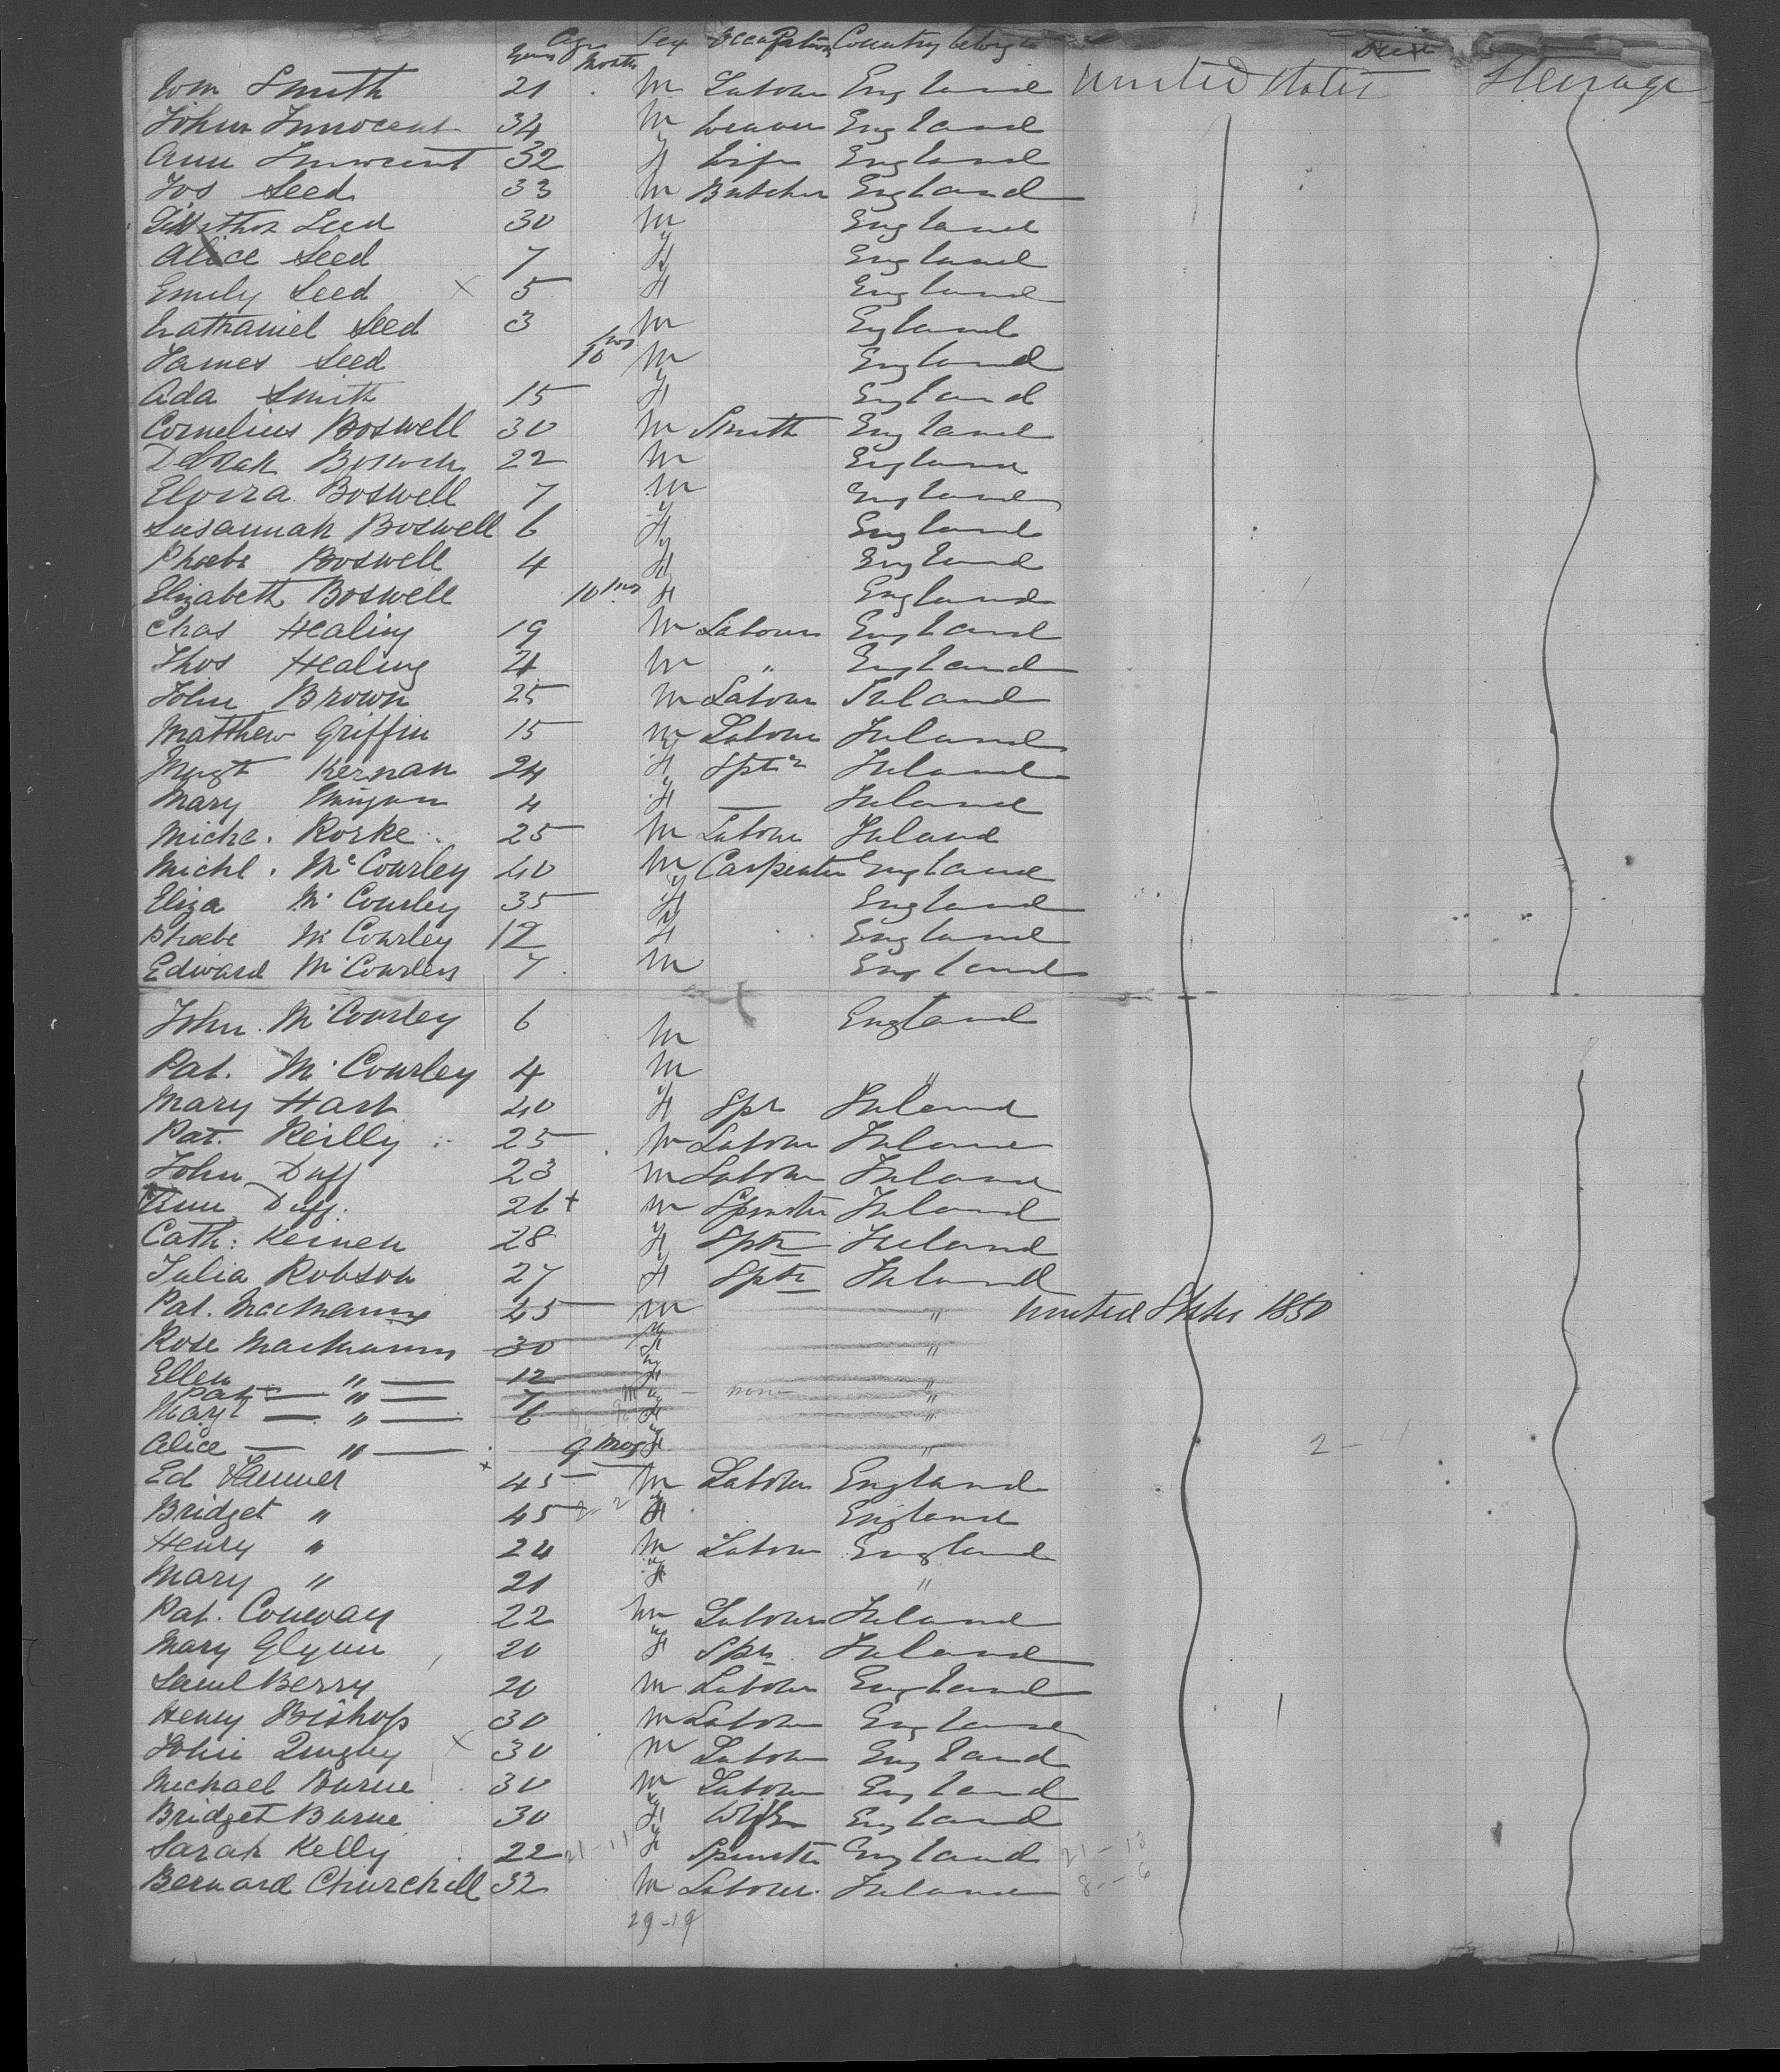 Age Sex Occupation Country belong to
Years Months
Wm Smith 21 M Labour England United States Steerage
John Innocent 34 M Weaver England
Ann Innocent 32 F Wife England
Jos Seed 33 M Butcher England
Seed 30 M England
Alice Seed 7 F England
Emily Seed x 5 F England
Nathaniel Seed 3 M England
James Seed 10 mos M England
Ada Smith 15 F England
Cornelius Boswell 30 M Smith England
Boswell 22 M England
Elvira Boswell 7 M England
Susannah Boswell 6 F England
Phoebe Boswell 4 F England
Elizabeth Boswell 10 mos F England
Chas Healing 19 M Labour England
Thos Healing M " England
John Brown 25 M Labour Ireland
Matthew Griffin 15 M Labour Ireland
Margt Kernan 24 F Sptr Ireland
Mary 4 F — Ireland
Micha. Rorke 25 M Labour Ireland
Michl. McCourley 40 M Carpenter England
Eliza McCourley 35 F England
Phoebe McCourley 12 F England
Edward McCourley 7 M England
John McCourley 6 M England
Pat. McCourley 4 M "
Mary Hart 40 F Spr Ireland
Pat. Reilly 25 M Labour Ireland
John Duff 23 M Labour Ireland
Ann Duff 26 + M Spinster Ireland
Cath: Keinen 28 F Sptr Ireland
Julia Robson 27 F Sptr Ireland
Pat. MacManus 45 M " United States 1850
Rose MacManus 30 F "
Ellen — " — 12 F "
Pat — " — 7 M — none "
Margt — " — 6 F "
Alice — " — 9 mos F " 2 - 4
Ed 45 M Labour England
Bridget " 45 F England
Henry " 24 M Labour England
Mary " 21 F "
Pat. Conway 22 M Labour Ireland
Mary Glynn 20 F Spr Ireland
Saml Berry 20 M Labour England
Henry Bishop 30 M Labour England
John Quigley x 30 M Labour England
Michael Burne 30 M Labour England
Bridget Burne 30 F Wife England
Sarah Kelly 22 21 - 11 F Spinster England 21 - 13
Bernard Churchill 32 M Labour Ireland 8 - 6
29-19